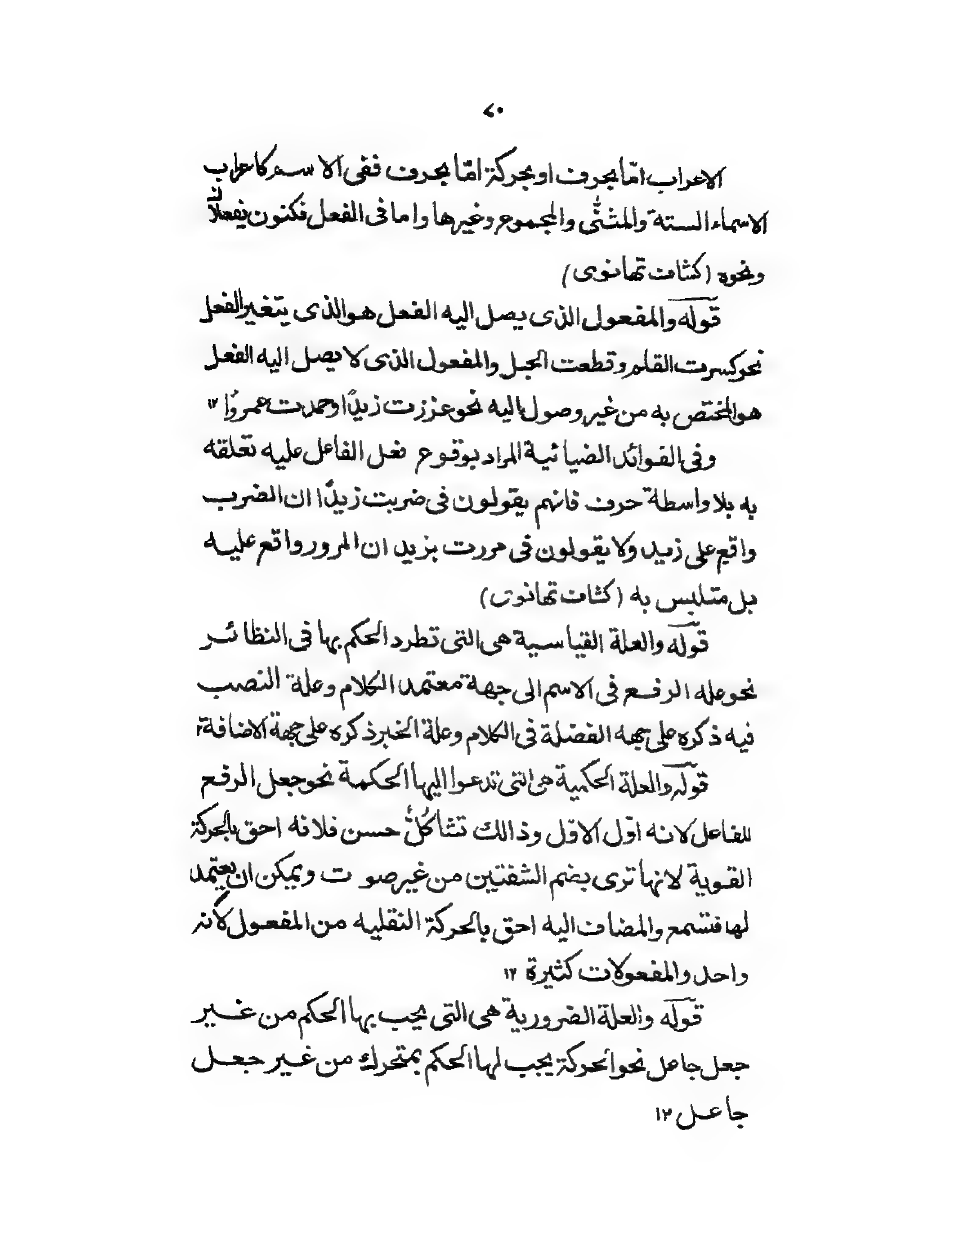 ۷۰
الاعراب امّا بحرف او بحركة امّا بحرف ففى الاسم كاعراب
الاسماء الستة والمثنّٰى والمجموع وغيرها واما فى الفعل فكنون يفعلان
ونحوه (كشاف تهانوى)
قوله والمفعول الذى يصل اليه الفعل هو الذى يتغير الفعل
نحو كسرت القلم وقطعت الحبل والمفعول الذى لا يصل اليه الفعل
هو المختص به من غير وصول اليه نحو عززت زيدًا وحمدت عمروًا ۱۲
وفى الفوائد الضيائية المراد بوقوع فعل الفاعل عليه تعلقه
به بلا واسطة حرف فانهم يقولون فى ضربت زيدًا ان الضرب
واقع على زيد ولا يقولون فى مررت بزيد ان المرور واقع عليه
بل متلبس به (كشاف تهانوى)
قوله والعلة القياسية هى التى تطرد الحكم بها فى النظائر
نحو عله الرفع فى الاسم الى جهة معتمد الكلام وعلة النصب
فيه ذكره على جهه الفضلة فى الكلام وعلة الخبر ذكره على جهة الاضافة ۱۲
قوله والعلة الحكمية هى التى تدعوا اليها الحكمة نحو جعل الرفع
للفاعل لانه اوّل الاوّل وذالك تشاكُلٌ حسن فلانه احق بالحركة
القوية لانها ترى بضم الشفتين من غير صوت ويمكن ان يعتمد
لها فتسمع والمضاف اليه احق بالحركة النقليه من المفعول لأنه
واحد والمفعولات كثيرة ۱۲
قوله والعلة الضرورية هى التى يجب بها الحكم من غير
جعل جاعل نحو الحركة يجب لها الحكم بمتحرك من غير جعل
جاعل ۱۲